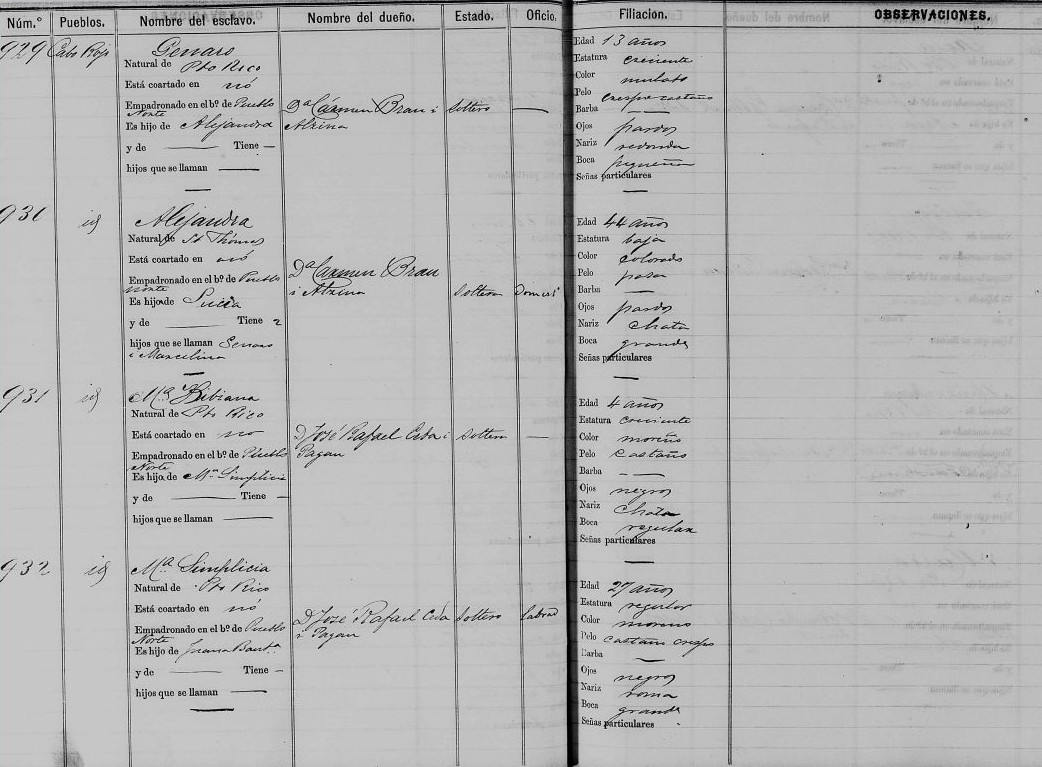 Núm.° Pueblos. Nombre del esclavo. Nombre del dueño. Estado. Oficio. Filiacion. OBSERVACIONES.
929 Cabo Rojo Genaro
Natural de Pto Rico
Está coartado en nó
Empadronado en el bº de Pueblo
Norte
Es hijo de Alejandra
y de — Tiene —
hijos que se llaman —
Dª Cármen Brau i
Alzina
Soltero —
Edad 13 años
Estatura creciente
Color mulato
Pelo crespo castaño
Barba —
Ojos pardos
Nariz redonda
Boca pequeña
Señas particulares
—
930 id Alejandra
Natural de St Thomas
Está coartado en nó
Empadronado en el bº de Pueblo
Norte
Es hija de Lucia
y de — Tiene 2
hijos que se llaman Genaro
i Marcelina
Dª Carmen Brau
i Alzina
Soltera Domest
Edad 44 años
Estatura baja
Color colorado
Pelo pasa
Barba —
Ojos pardos
Nariz chata
Boca grande
Señas particulares
—
931 id Mª Bibiana
Natural de Pto Rico
Está coartado en no
Empadronado en el bº de Pueblo
Norte
Es hija de Mª Simplicia
y de — Tiene —
hijos que se llaman —
D José Rafael Ceba i
Pagan
Soltera —
Edad 4 años
Estatura creciente
Color moreno
Pelo castaño
Barba —
Ojos negros
Nariz chata
Boca regular
Señas particulares
—
932 id Mª Simplicia
Natural de Pto Rico
Está coartado en nó
Empadronado en el bº de Pueblo
Norte
Es hijo de Juana Bautª
y de — Tiene —
hijos que se llaman —
D José Rafael
i Pagan
Soltero Labrad
Edad 27 años
Estatura regular
Color moreno
Pelo castaño crespo
Barba —
Ojos negros
Nariz roma
Boca grande
Señas particulares